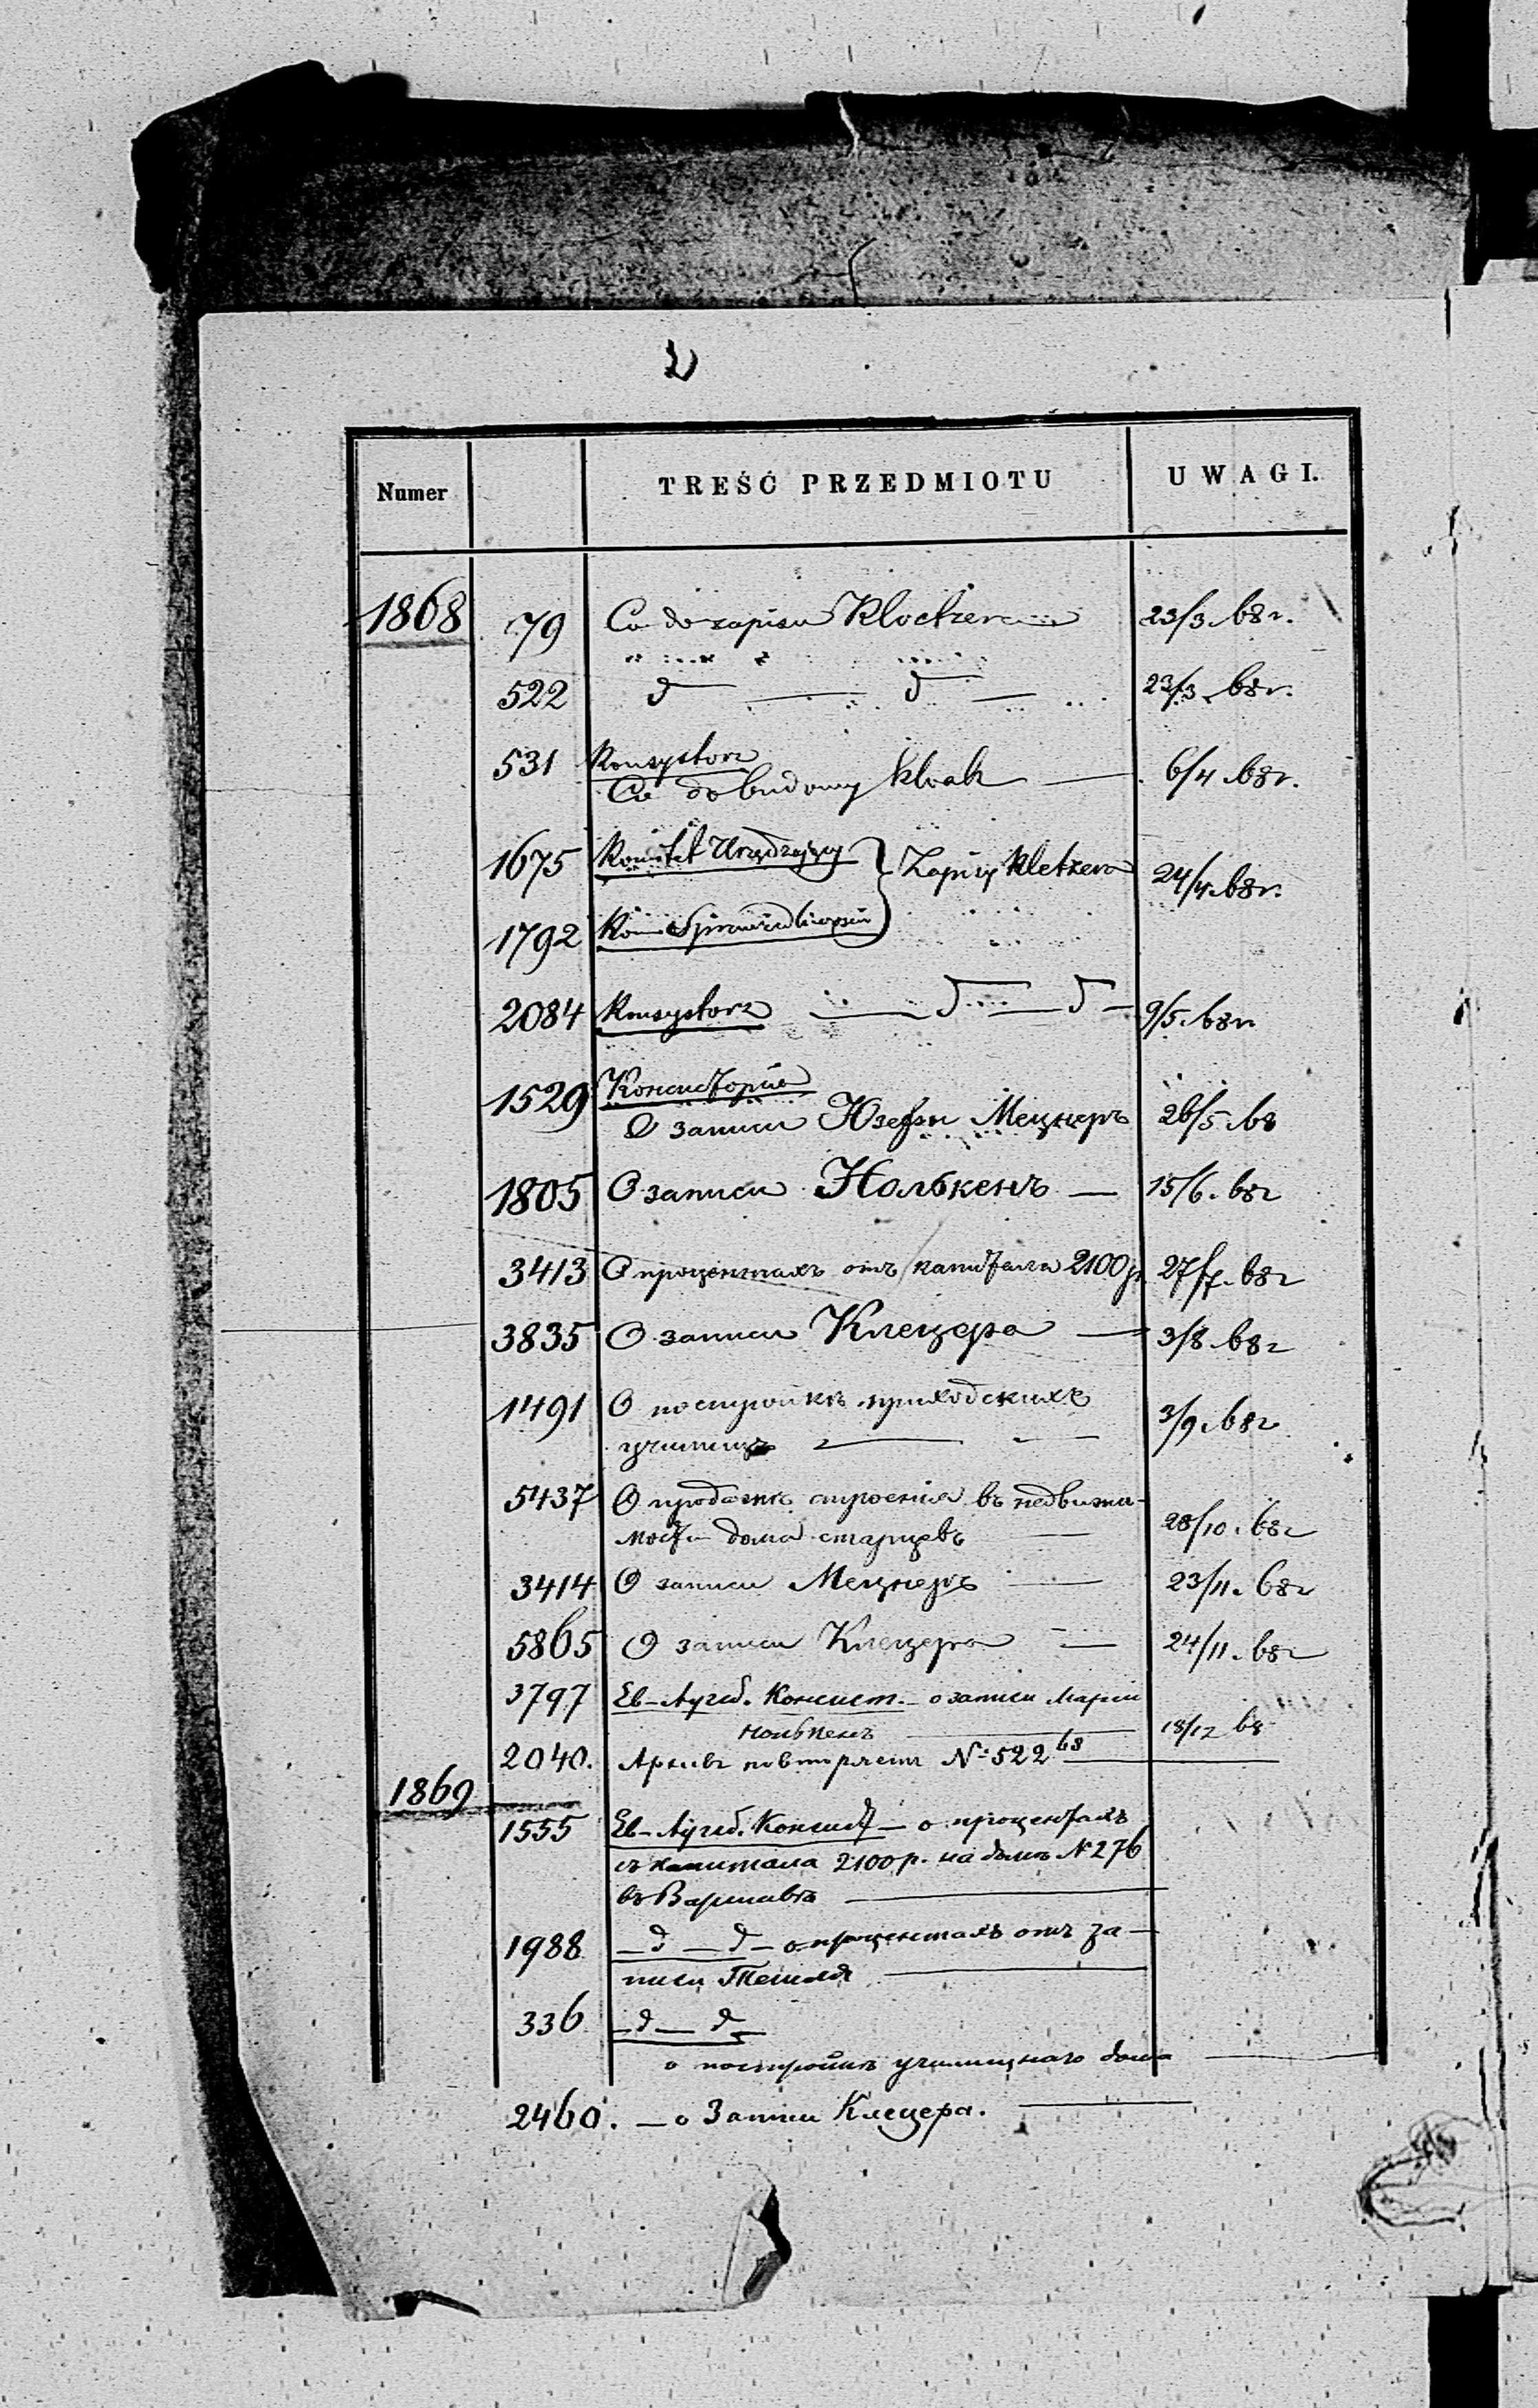 2
Numer TREŚĆ PRZEDMIOTU UWAGI.
1868 79 Co do zapisu Kloetzera 23/3 68 r.
522 d — d — 23/3 68 r.
531 Konsystorz
Co do budowy kloak — 6/4 68 r.
1675 Komitet Urządzający } Zapisy Kletzera 24/4 68 r.
1792 Kom Sprawiedliwości
2084 Konsystorz — d — d — 9/5 68 r
1529 Консисторія
О записи Юзефы Мецнеръ 26/5 68
1805 О записи Нолькенъ — 15/6. 68 г
3413 О процентахъ отъ капитала 2100 р 27/7. 68 г
3835 О записи Клецера — 3/8 68 г
1491 О постройкѣ приходскихъ
училищъ — — 3/9. 68 г
5437 О продажѣ строенія въ недвижи-
мости дома старцевъ — 28/10. 68 г
3414 О записи Мецнеръ — 23/11. 68 г
5865 О записи Клецера — 24/11. 68 г
3797 Ев-Аугсб. Консист. — о записи Маріи
Нолькенъ — 18/12 68
2040. Архивъ повторяетъ № 522 68 —
1869
1555 Ев-Аугсб. Консист — о процентахъ
съ капитала 2100 р. на домѣ № 276
въ Варшавѣ —
1988 — d — d — о процентахъ отъ за-
писи —
336 — d — d —
о постройкѣ училищнаго дома —
2460. — о Записи Клецера. —